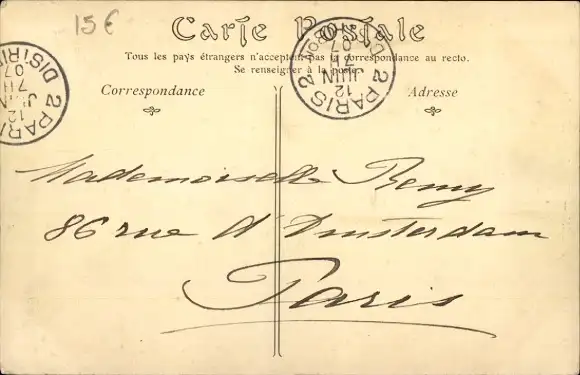 15 €
Carte Postale
Tous les pays étrangers n'acceptent pas la correspondance au recto.
Se renseigner à la poste.
Correspondance
Adresse
2 PARIS 2
12
JUIN
7 H
07
DISTRIB
2 PARIS 2
12
JUIN
7 H
07
Mademoiselle Remy
86 rue d'Amsterdam
Paris